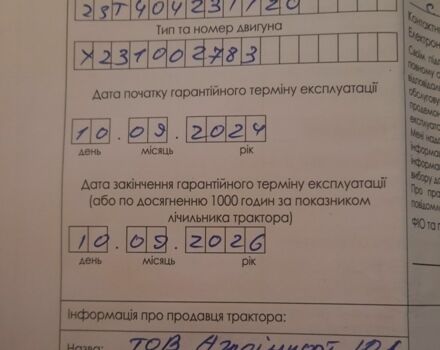 23T404231120
Тип та номер двигуна
X231002783
Дата початку гарантійного терміну експлуатації
10.09.2024
день місяць рік
Дата закінчення гарантійного терміну експлуатації
(або по досягненню 1000 годин за показником
лічильника трактора)
10.09.2026
день місяць рік
Інформація про продавця трактора:
Назва: ТОВ
Контактн
Електрон
Своїм підп
повному о
відповідаль
обслугову
продемон
експлуата
Мені нада
інформац
інформац
вибору до
Про пра
повідомле
ФІО та п